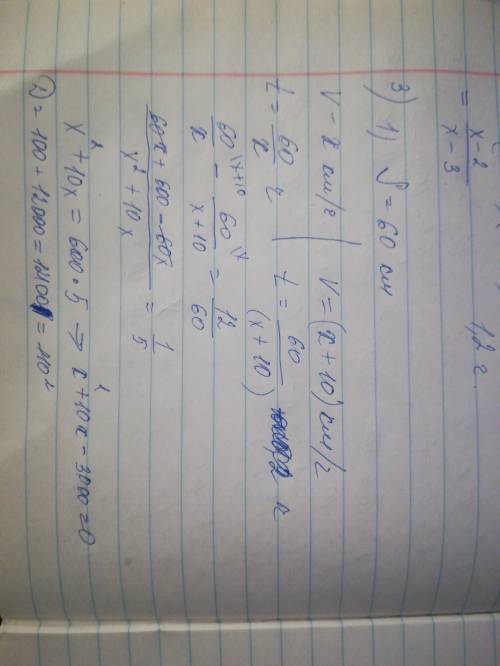 = (x-2)/(x-3)
1,2 г.
3) 1) S = 60 км
V - x км/г | V = (x+10) км/г
t = 60/x г | t = 60/(x+10) г
60/x \x+10 - 60/(x+10) \x = 12/60
(60x + 600 - 60x)/(x² + 10x) = 1/5
x² + 10x = 600 · 5 → x² + 10x - 3000 = 0
D = 100 + 12000 = 12100 = 110²